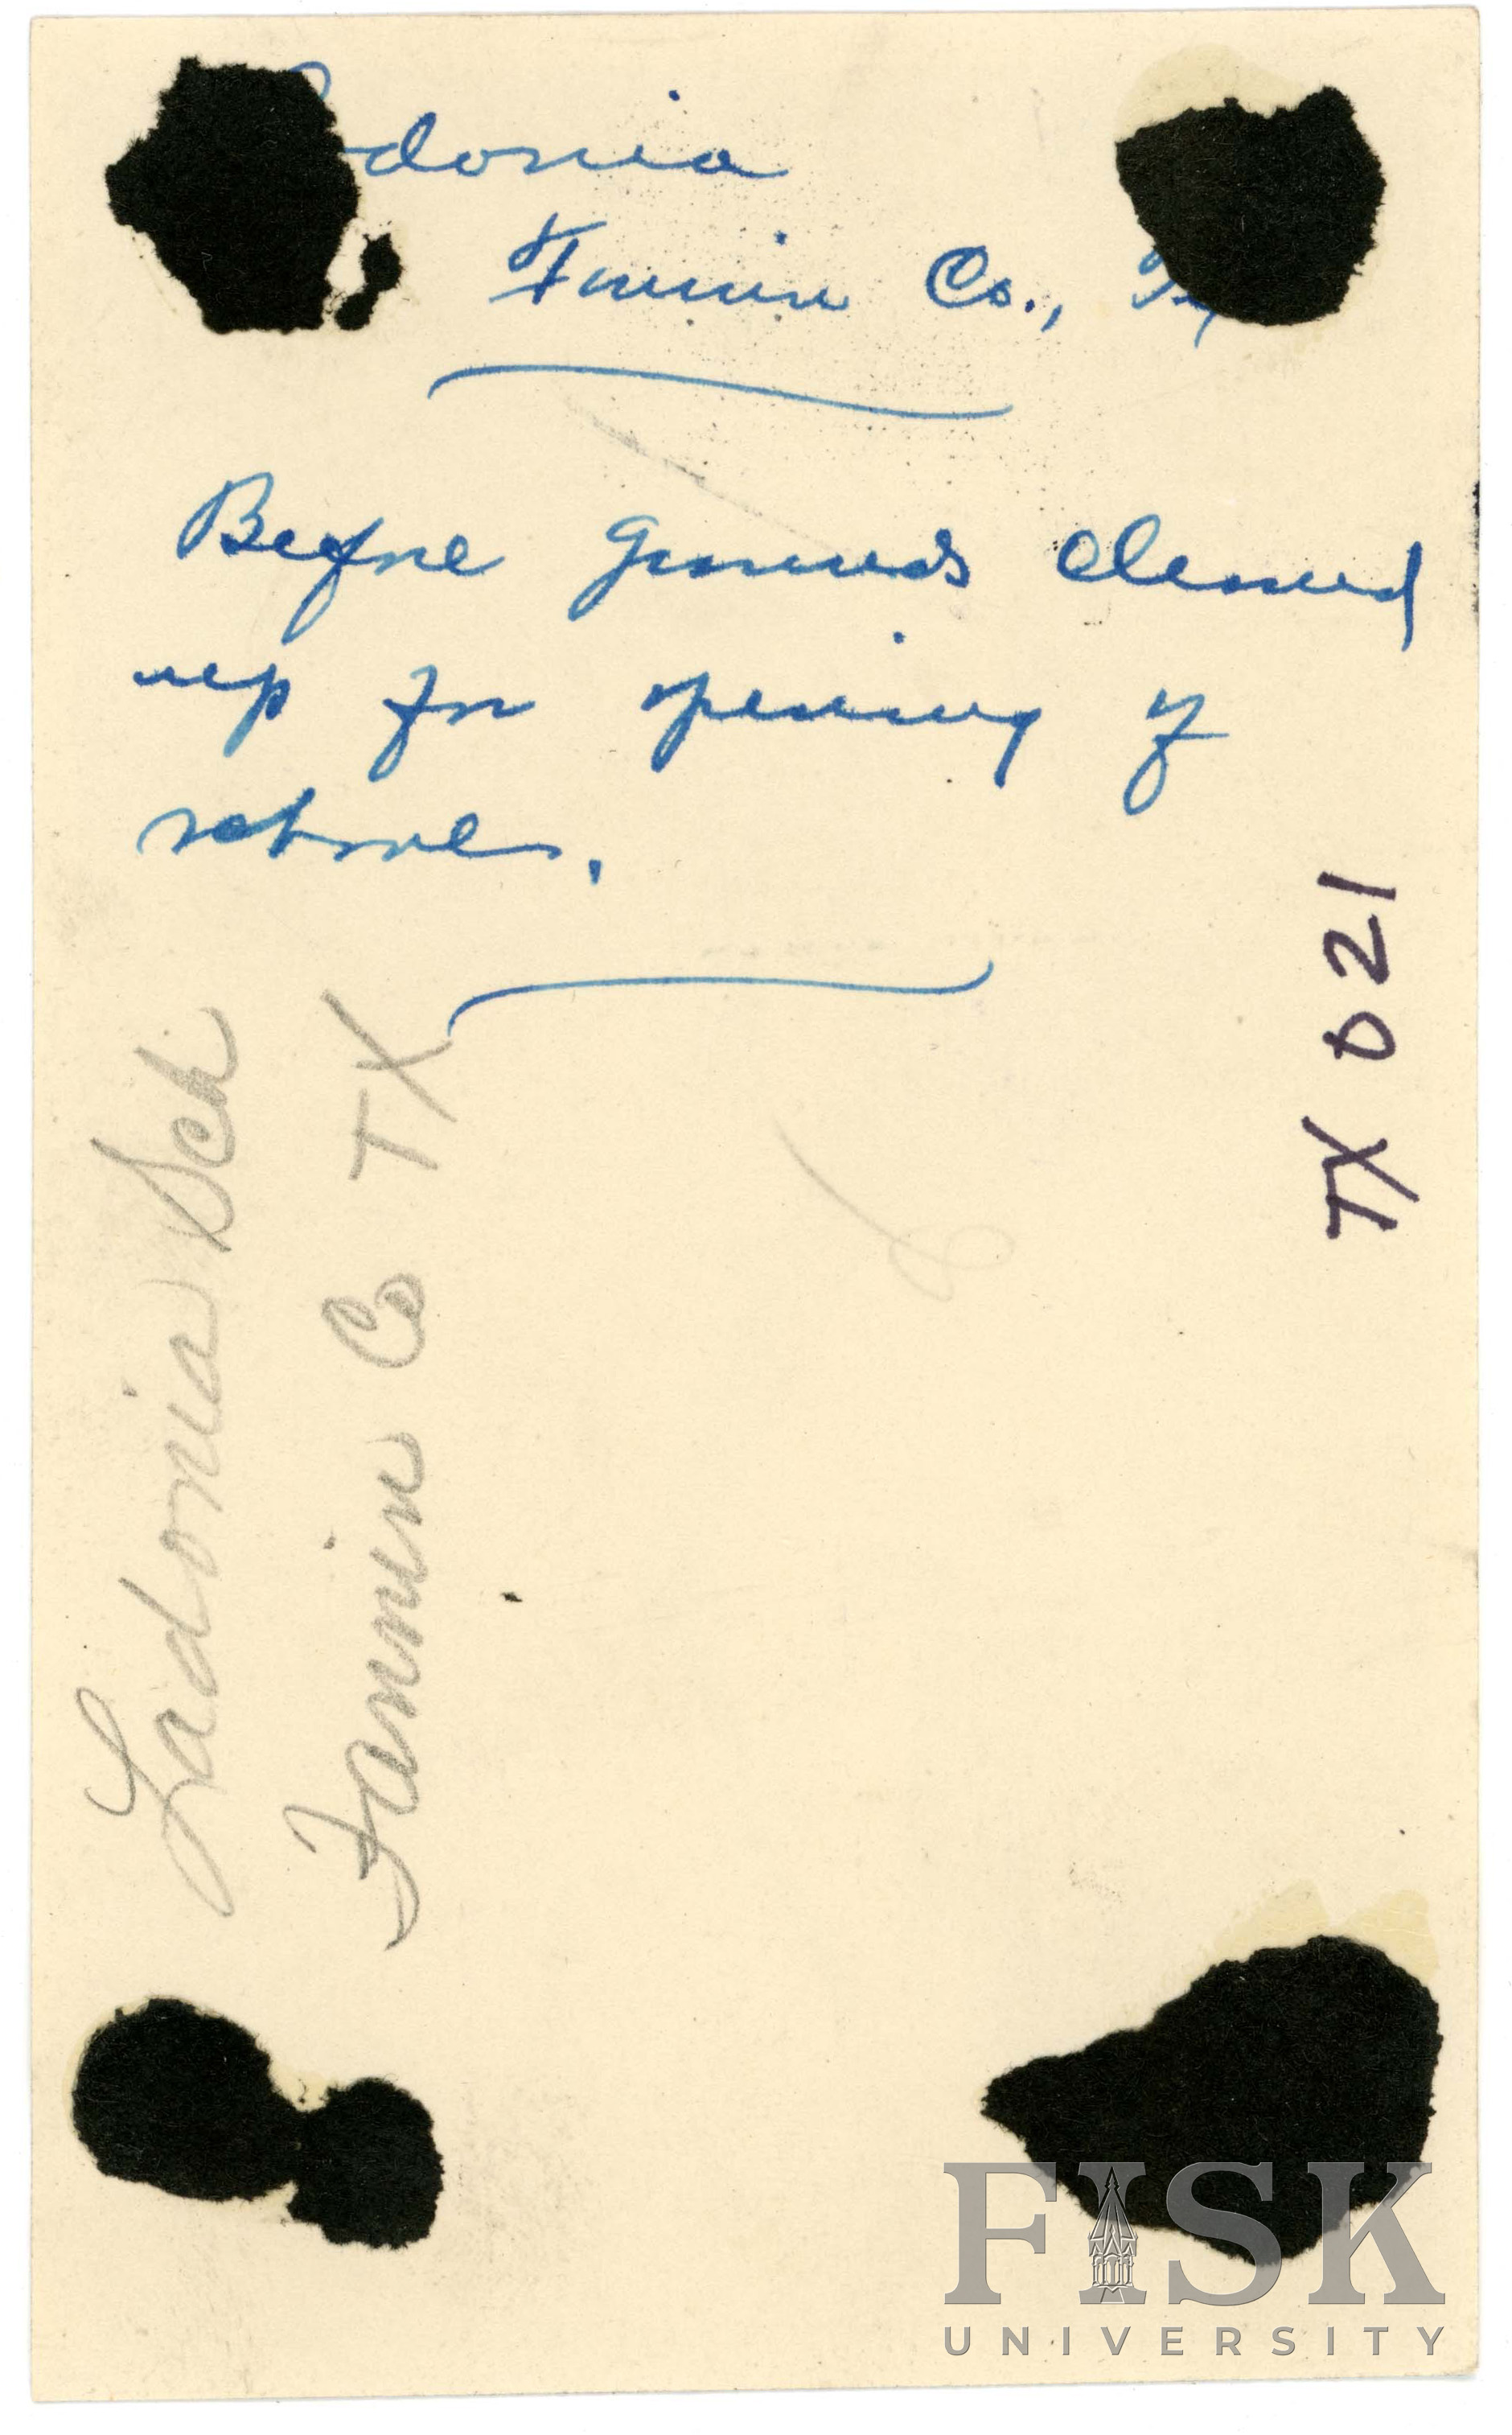 Ladonia
Fannin Co., Tx
Before grounds cleaned
up for opening of
schools.
TX 021
Ladonia Sch
Fannin Co TX
FISK
UNIVERSITY